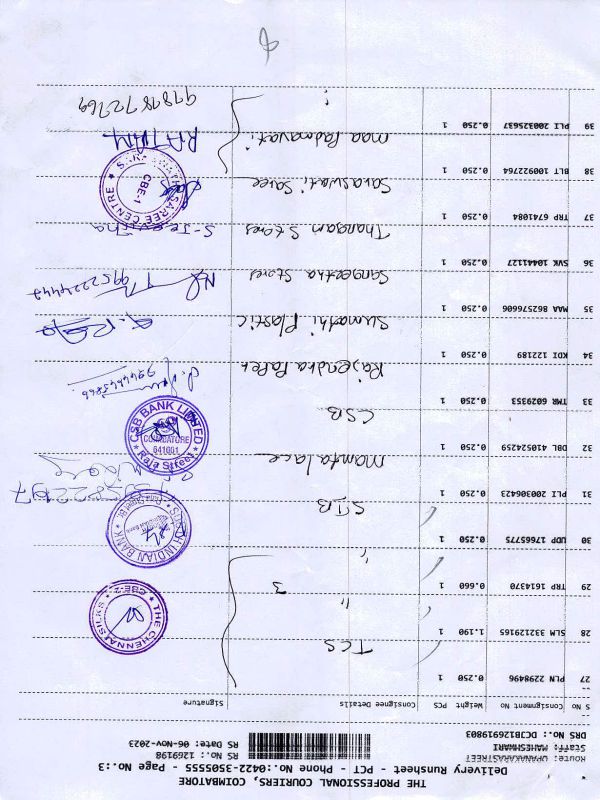 THE PROFESSIONAL COURIERS, COIMBATORE
Delivery Runsheet - PCT - Phone No.:0422-3505555 - Page No.:3
Route: UPANAKARASTREET
Staff: MAHESHWARI
DRS No.: DCJB126919803
RS No.: 1269198
RS Date: 06-Nov-2023
S No Consignment No Weight PCS Consignee Details Signature
27 PLN 2298496 0.250 1 TCS
28 SLM 332129165 1.190 1 "
29 TRP 1614370 0.660 1 " 3
THE CHENNAI SILKS ★ CBE-1 ★
30 UDP 17665775 0.250 1 SIB
SOUTH INDIAN BANK
31 PLI 200306423 0.250 1 Mamta lace
32 DBL 410524259 0.250 1 CSB
CSB BANK LIMITED
COIMBATORE
641001
★ Raja Street ★
33 TMR 6029353 0.250 1 Rajendra Paper
34 KDI 122189 0.250 1 Sumathi Plastic
35 MAA 862576606 0.250 1 Sangeetha Stores 9952224442
36 SVK 10441127 0.250 1 Thangam Stores
37 TRP 6741084 0.250 1 Saraswati Saree
SAREE CENTRE ★
CBE-1
38 BLT 100922764 0.250 1 Maa Padmavati RATHAM
39 PLI 200325637 0.250 1 " 9787872769